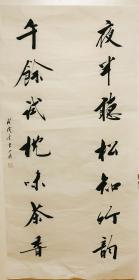 夜半聽松知竹韵
午餘試枕味茶香